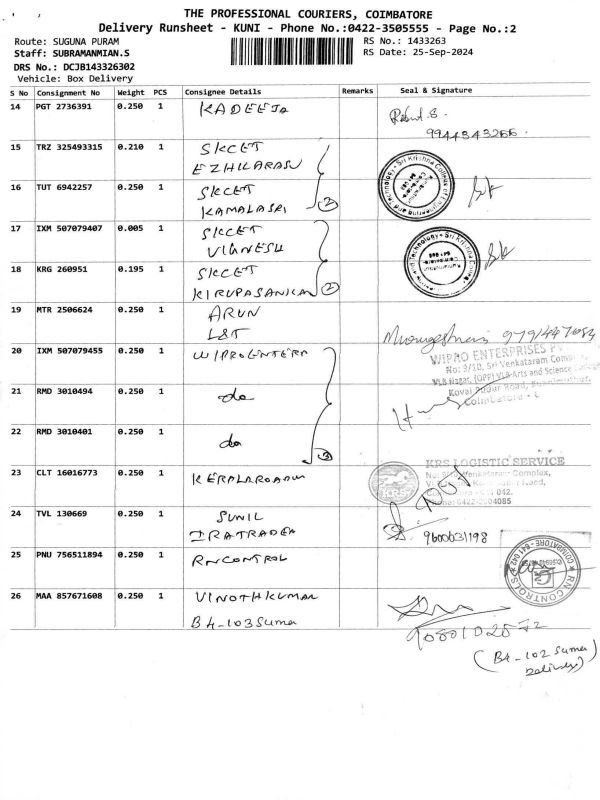 THE PROFESSIONAL COURIERS, COIMBATORE
Delivery Runsheet - KUNI - Phone No.:0422-3505555 - Page No.:2
Route: SUGUNA PURAM
RS No.: 1433263
Staff: SUBRAMANMIAN.S
RS Date: 25-Sep-2024
DRS No.: DCJB143326302
Vehicle: Box Delivery
S No Consignment No Weight PCS Consignee Details Remarks Seal & Signature
14 PGT 2736391 0.250 1 KADEEJA
9944343266
15 TRZ 325493315 0.210 1 SKCET
EZHILARASU
16 TUT 6942257 0.250 1 SKCET
KAMALASRI 2
17 IXM 507079407 0.005 1 SKCET
VIGNESH
18 KRG 260951 0.195 1 SKCET
KIRUPASANKAR 2
19 MTR 2506624 0.250 1 ARUN
L&T
20 IXM 507079455 0.250 1 WIPROENTERP
WIPRO ENTERPRISES
No: 9/10, Sri Venkataram
VLB Nagar, (OPP) VLB Arts and Science College
Coimbatore
21 RMD 3010494 0.250 1 do
22 RMD 3010401 0.250 1 do
3
23 CLT 16016773 0.250 1
KRS LOGISTIC SERVICE
Venkataram Complex,
Road,
042.
KRS
24 TVL 130669 0.250 1 SUNIL
IRATRADER
9600631198
25 PNU 756511894 0.250 1 RNCONTROL
RN CONTROLS
COIMBATORE - 641 042
26 MAA 857671608 0.250 1 VINOTHKUMAR
B4-103 Suma
(B4-102 Suma
Delivery)